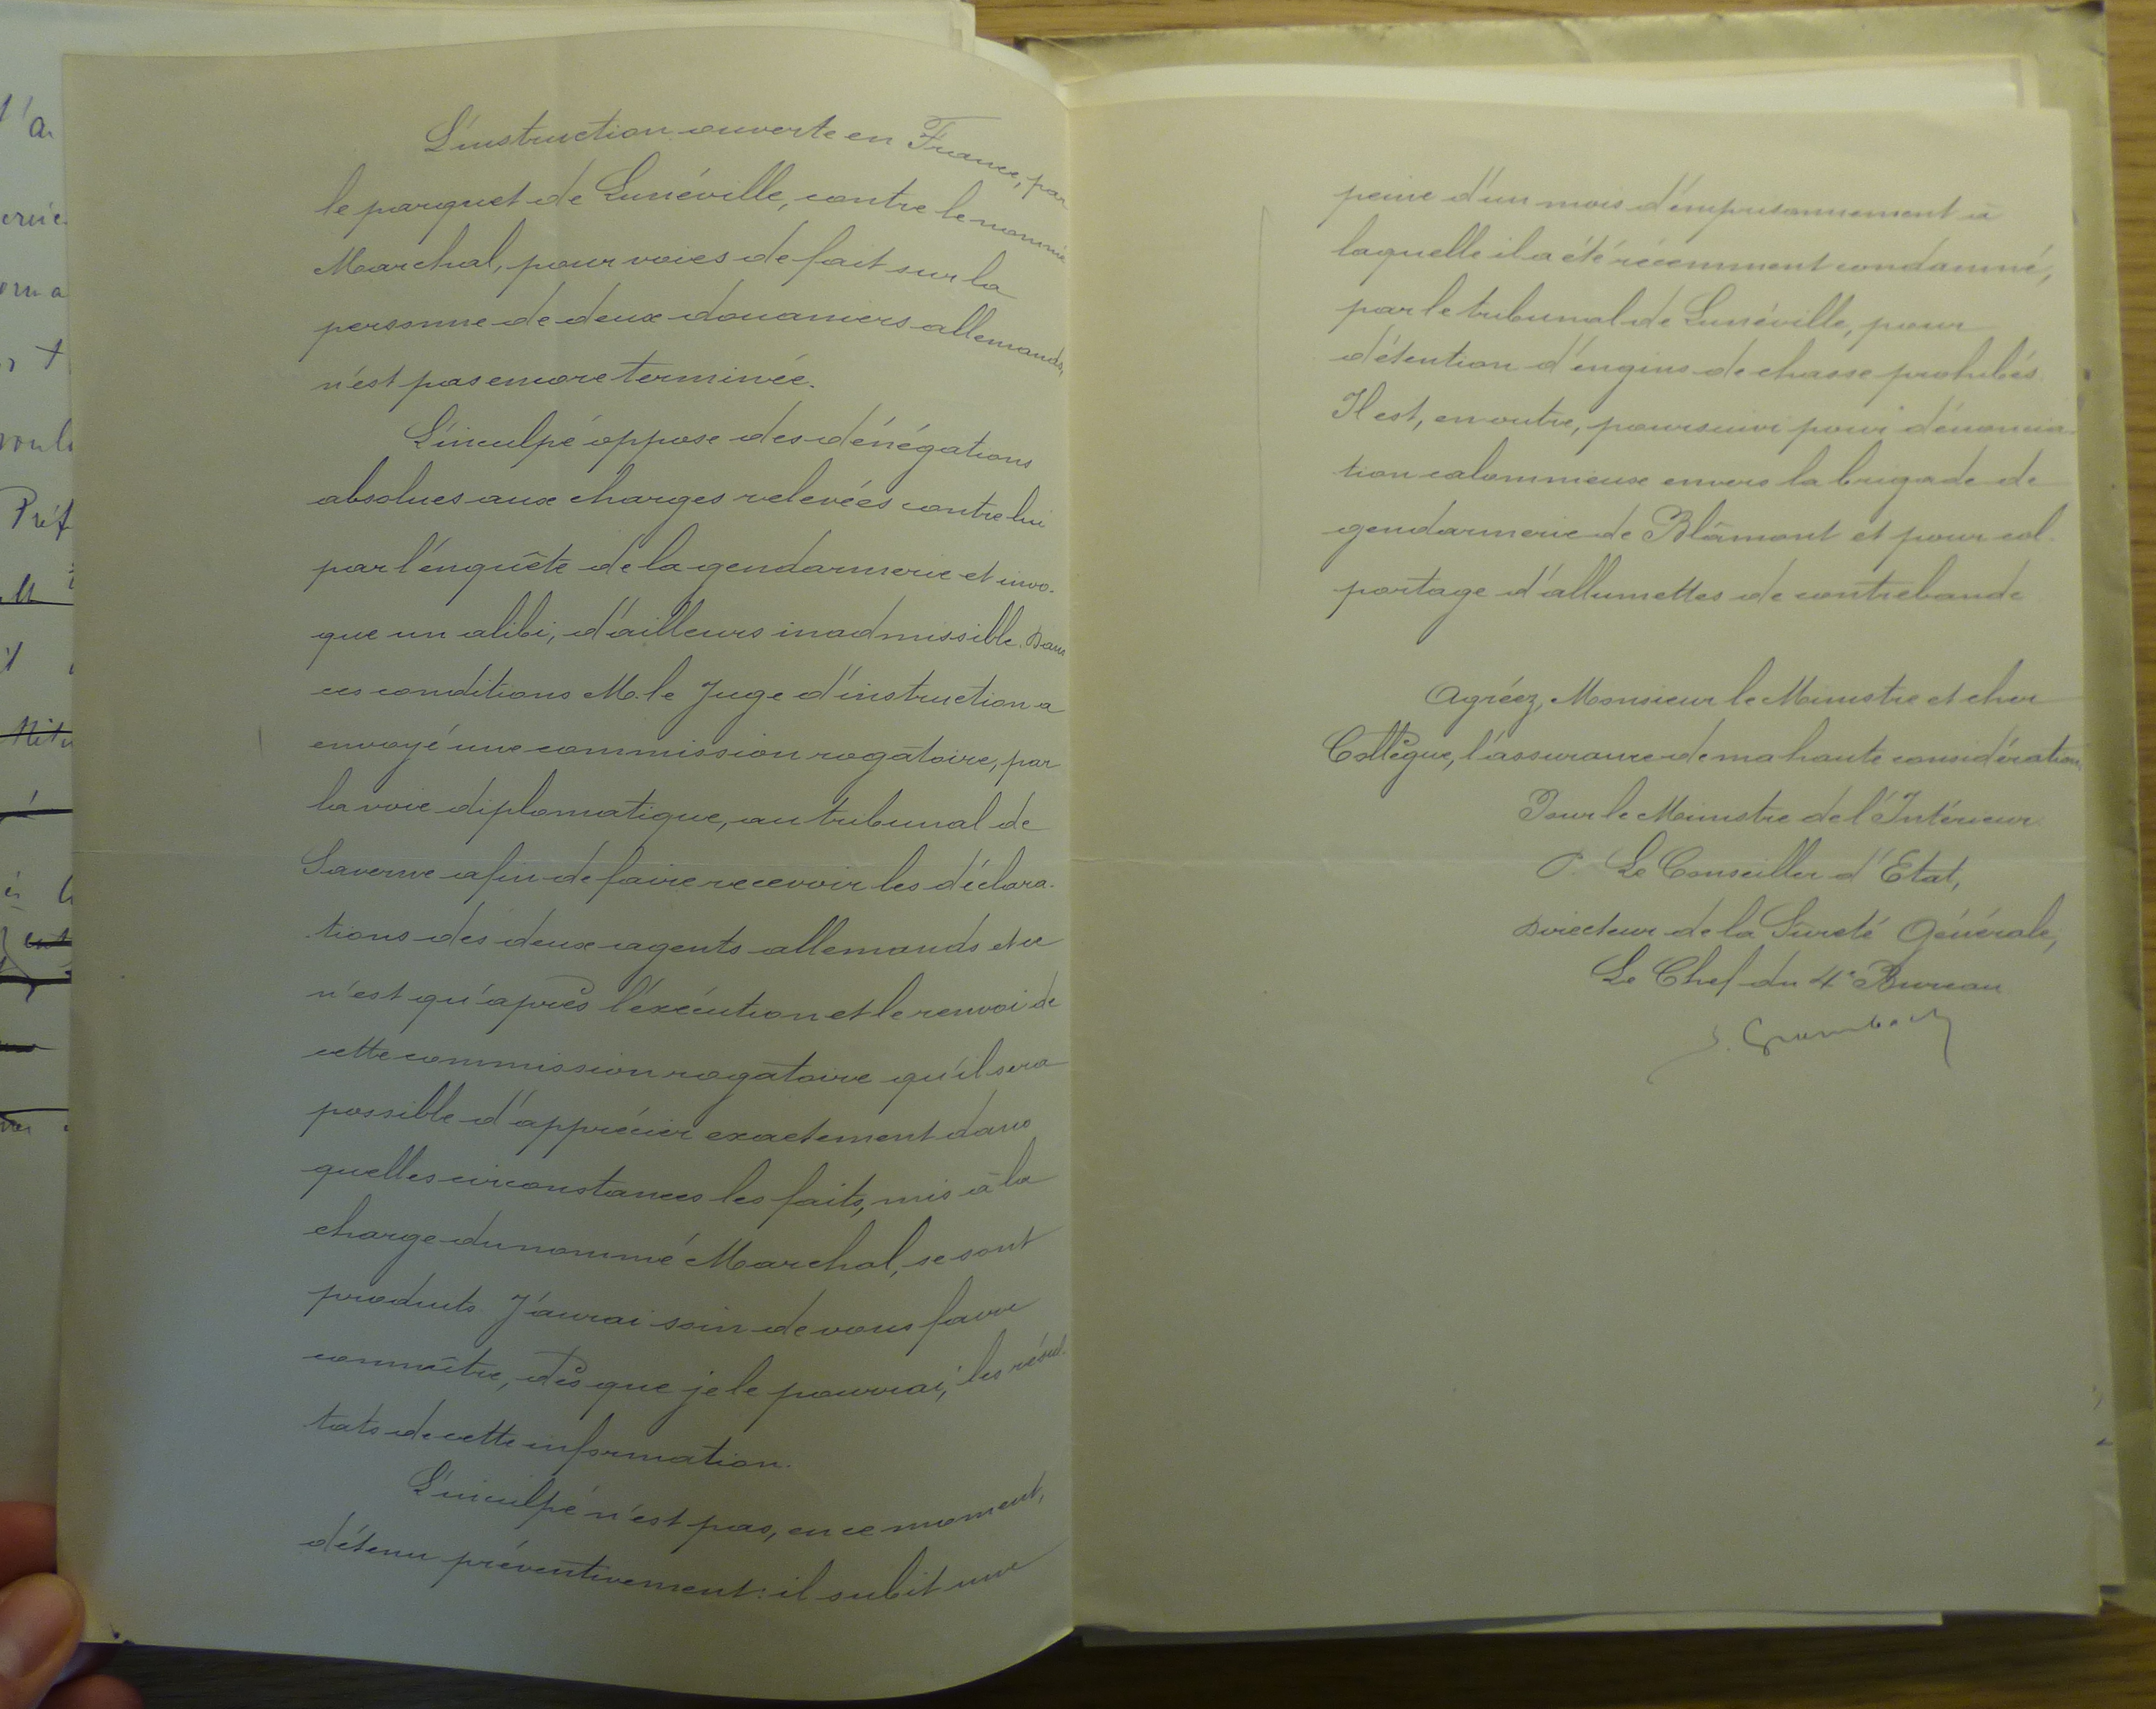 L'instruction ouverte en France, par
le parquet de Lunéville, contre le nommé
Marchal, pour voies de fait sur la
personne de deux douaniers allemands,
n'est pas encore terminée.
L'inculpé oppose des dénégations
absolues aux charges relevées contre lui
par l'enquête de la gendarmerie et invo-
que un alibi, d'ailleurs inadmissible. Dans
ces conditions M. le Juge d'instruction a
envoyé une commission rogatoire, par
la voie diplomatique, au tribunal de
Saverne afin de faire recevoir les déclara-
tions des deux agents allemands et ce
n'est qu'après l'exécution et le renvoi de
cette commission rogatoire qu'il sera
possible d'apprécier exactement dans
quelles circonstances les faits, mis à la
charge du nommé Marchal, se sont
produits. J'aurai soin de vous faire
connaître, dès que je le pourrai, les résul-
tats de cette information.
L'inculpé n'est pas, en ce moment,
détenu préventivement: il subit une
peine d'un mois d'emprisonnement à
laquelle il a été récemment condamné,
par le tribunal de Lunéville, pour
détention d'engins de chasse prohibés.
Il est, en outre, poursuivi pour dénoncia-
tion calomnieuse envers la brigade de
gendarmerie de Blâmont et pour col-
portage d'allumettes de contrebande
Agréez, Monsieur le Ministre et cher
Collègue, l'assurance de ma haute considération,
Pour le Ministre de l'Intérieur
P. Le Conseiller d'Etat,
Directeur de la Sûreté Générale,
Le Chef du 4e Bureau
S. Grumbach